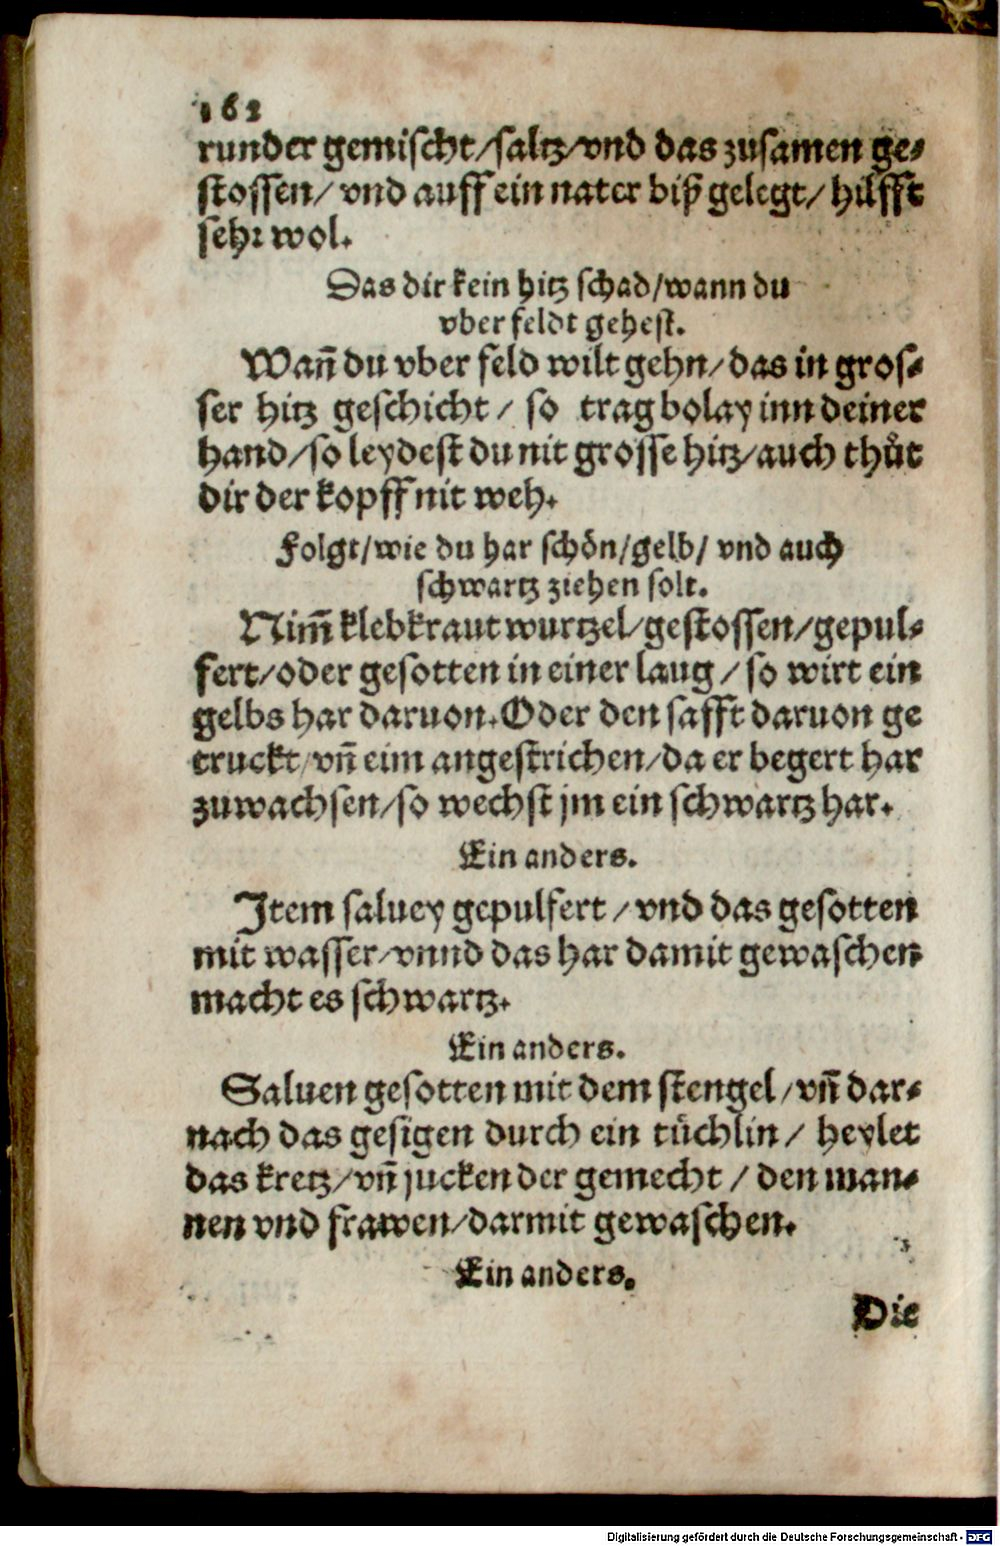 162
runder gemischt/saltz/vnd das zusamen ge-
stossen/ vnd auff ein nater biß gelegt/ hilfft
sehr wol.
Das dir kein hitz schad/wann du
vber feldt gehest.
Wañ du vber feld wilt gehn/das in gros-
ser hitz geschicht/ so trag bolay inn deiner
hand/so leydest du nit grosse hitz/auch thůt
dir der kopff nit weh.
Folgt/wie du har schön/gelb/ vnd auch
schwartz ziehen solt.
Nim̄ klebkraut wurtzel/gestossen/gepul-
fert/oder gesotten in einer laug/so wirt ein
gelbs har daruon. Oder den safft daruon ge
truckt/vñ eim angestrichen/da er begert har
zuwachsen/so wechst jm ein schwartz har.
Ein anders.
Item saluey gepulfert/vnd das gesotten
mit wasser/vnnd das har damit gewaschen
macht es schwartz.
Ein anders.
Saluen gesotten mit dem stengel/vñ dar-
nach das gesigen durch ein tüchlin/ heylet
das kretz/vñ jucken der gemecht/den man-
nen vnd frawen/darmit gewaschen.
Ein anders.
Die
Digitalisierung gefördert durch die Deutsche Forschungsgemeinschaft - DFG